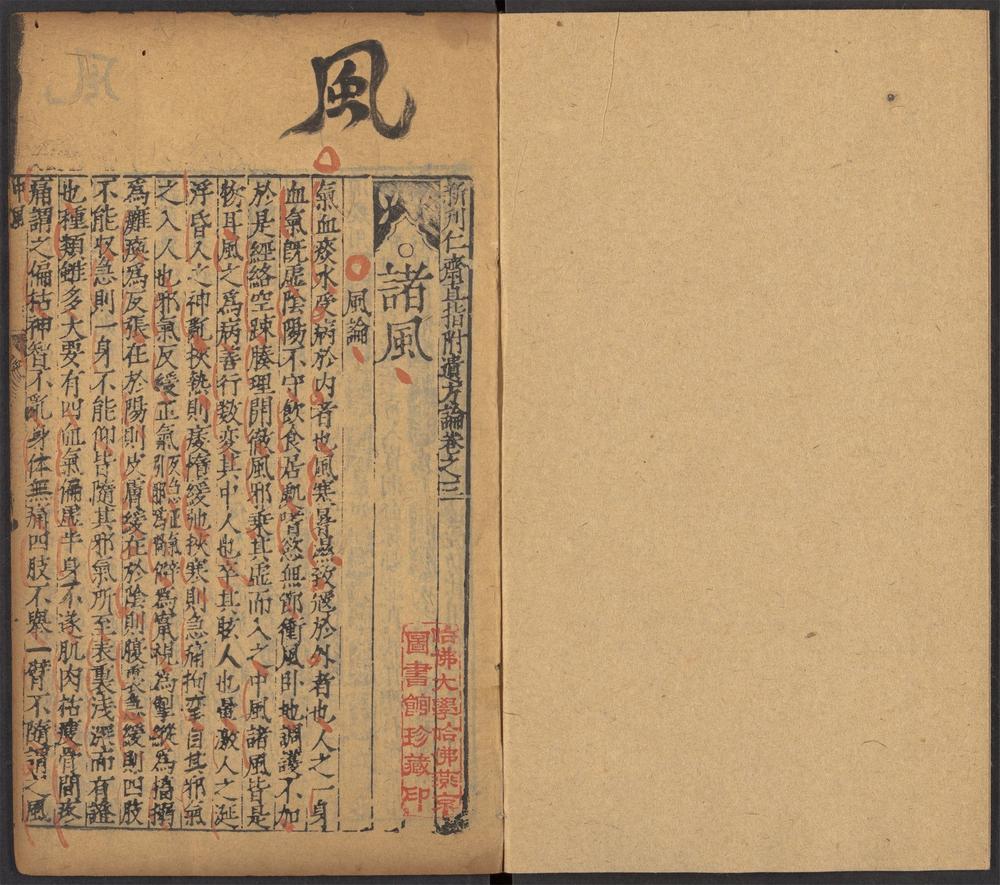 風
新刊仁齋直指附遺方論卷之三
諸風
風論
氣血痰水受病於内者也風寒暑濕致寇於外者也人之一身
血氣既虛陰陽不守飲食居處嗜慾無節衝風卧地調護不加
於是經絡空踈腠理開徹風邪乗其虛而入之中風諸風皆是
物耳風之爲病善行数变其中人也卒其眩人也暈激人之涎
浮昏人之神亂挾熱則痿惰緩弛挾寒則急痛拘攣自其邪氣
之入人也邪氣反緩正氣反急正氣引邪爲喎僻爲竄視爲掣縱爲搐搦
爲癱瘓爲反張在於陽則皮膚緩在於陰則腹裏急緩則四肢
不能収急則一身不能仰皆隨其邪氣所至表裏浅深而有證
也種類雖多大要有四血氣偏虛半身不遂肌肉枯瘦骨間疼
痛謂之偏枯神智不亂身体無痛四肢不舉一臂不隨謂之風
中風
哈佛大學哈佛燕京
圖書館珍藏印